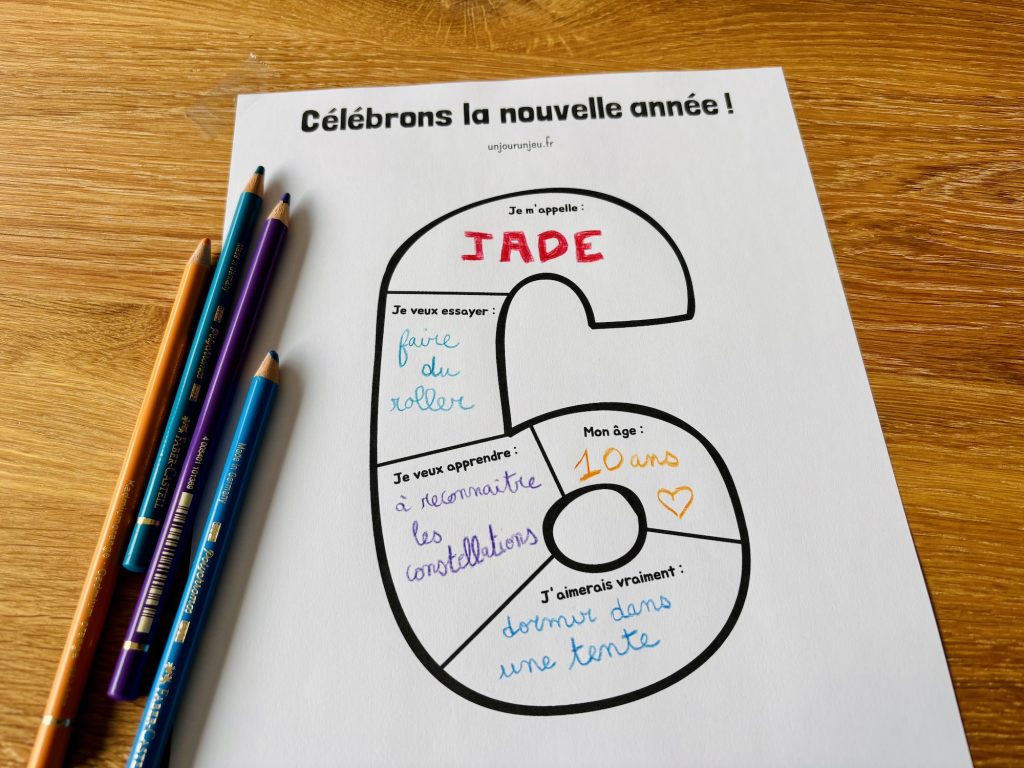 Célébrons la nouvelle année !
unjourunjeu.fr
Je m'appelle :
JADE
Je veux essayer :
faire
du
roller
Mon âge :
10 ans
Je veux apprendre :
à reconnaitre
les
constellations
J'aimerais vraiment :
dormir dans
une tente
Made in Germany
Polychromos
FABER-CASTELL
4 005401 101369
Made in Germany
Polychromos
FABER-CASTE